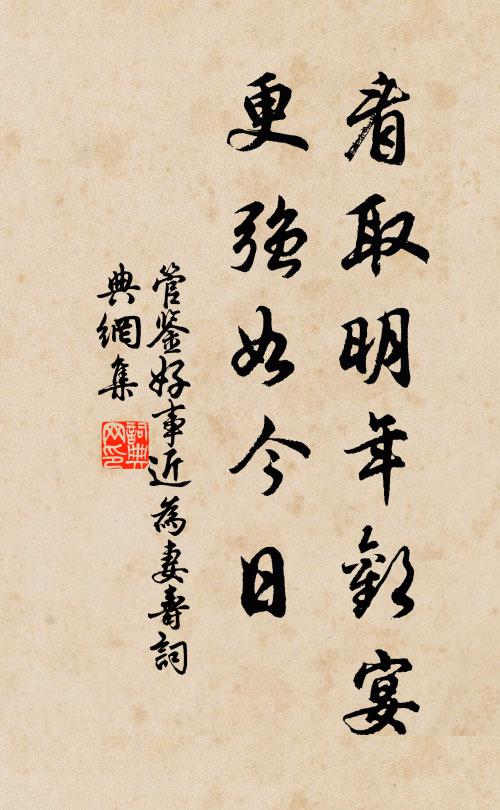 看取明年歡宴
更強如今日
管鉴好事近為妻壽詞
典網集
詞典网印